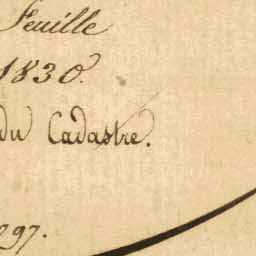 Feuille
1830.
du Cadastre.
297.